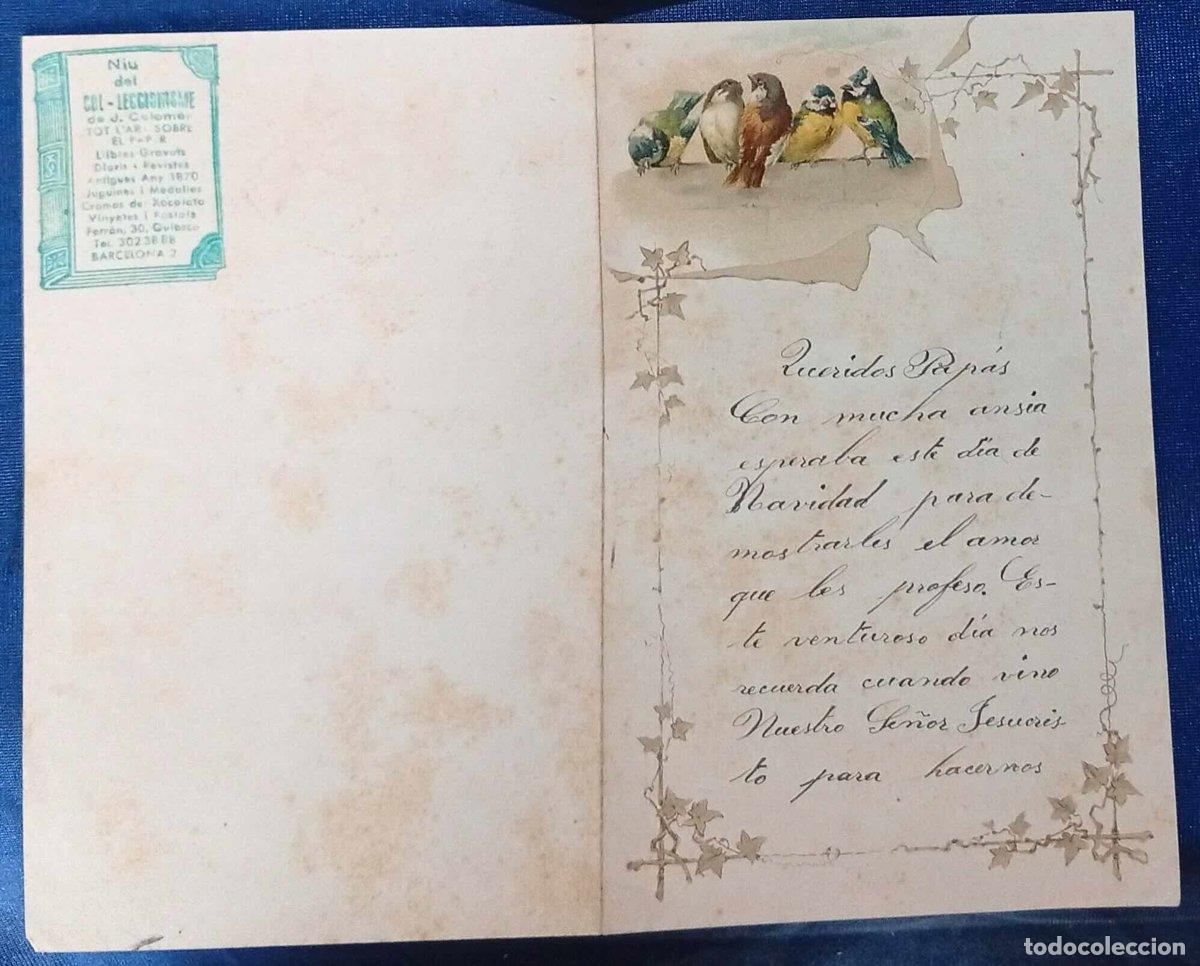 Niu
del
COL-LECCIONISME
de J. Colomer
TOT L'ART SOBRE
EL PAPER
Llibres Gravats
Diaris i Revistes
Antigues Any 1870
Juguines i Medalles
Cromos de Xocolata
Vinyetes i Postals
Ferrán, 30, Quiosco
Tel. 302 38 88
BARCELONA 2
Queridos Papás
Con mucha ansia
esperaba este día de
Navidad para de-
mostrarles el amor
que les profeso. Es-
te venturoso día nos
recuerda cuando vino
Nuestro Señor Jesucris-
to para hacernos
todocoleccion